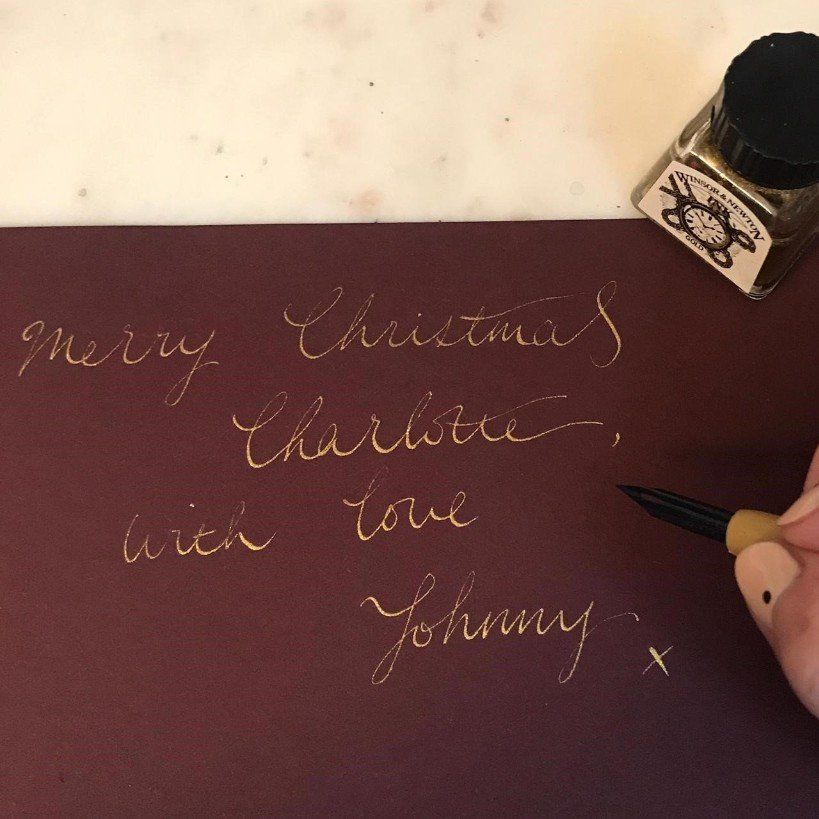 WINSOR & NEWTON
GOLD
Merry Christmas
Charlotte,
with love
Johnny
x